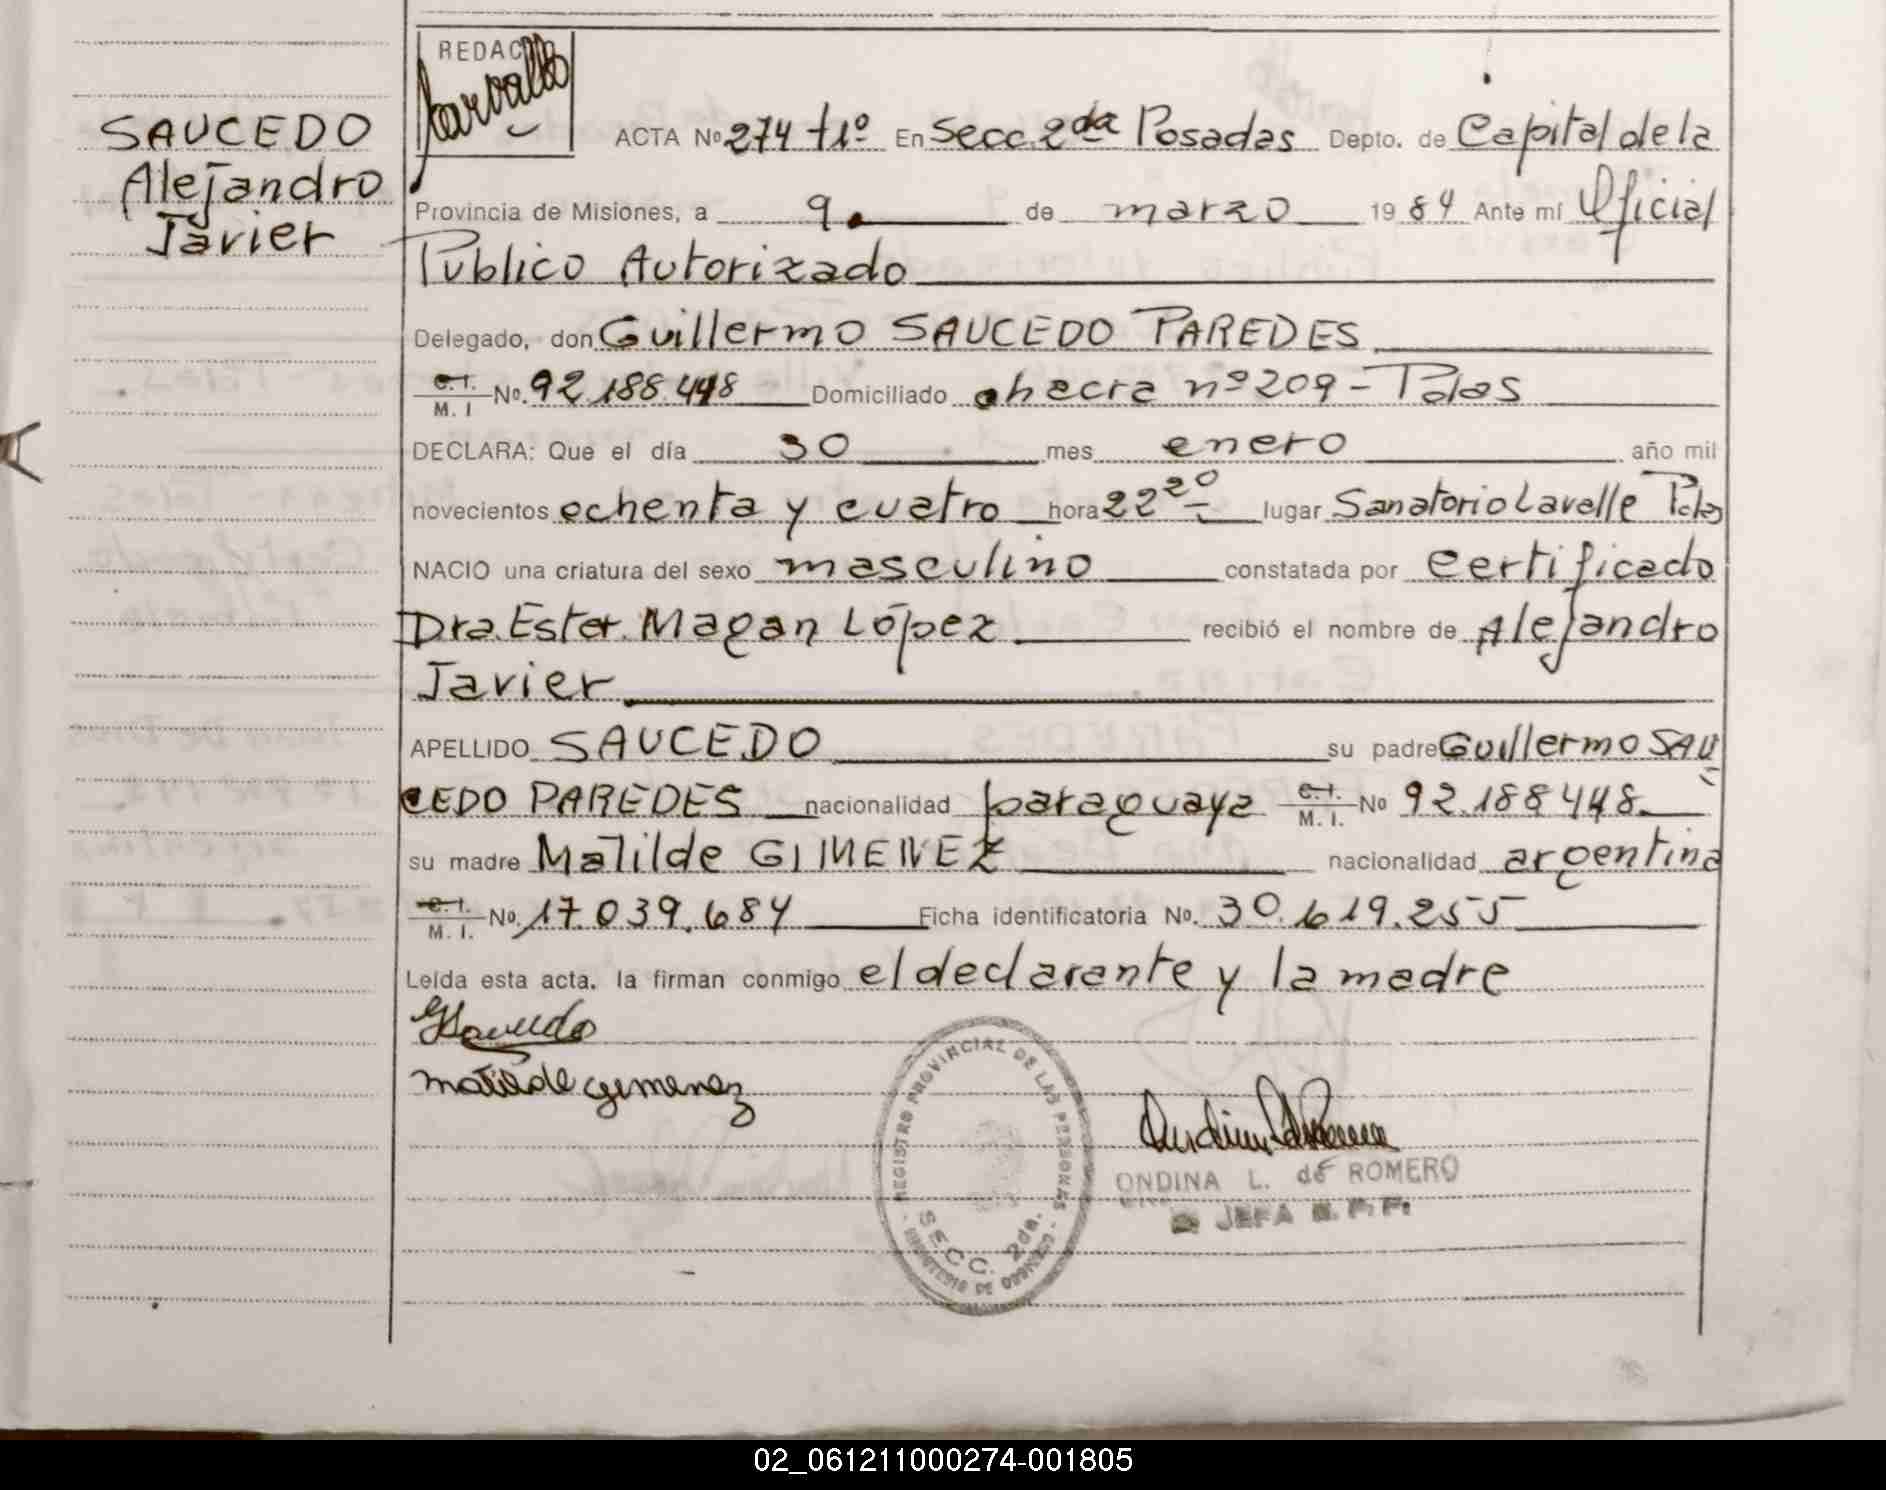 SAUCEDO
Alejandro
Javier
REDAC
Carvallo
ACTA Nº 274 tº1º En Secc. 2da Posadas Depto. de Capital de la
Provincia de Misiones, a 9 de marzo 1984 Ante mí Oficial
Publico Autorizado
Delegado, don Guillermo SAUCEDO PAREDES
C.I. M.I Nº. 92.188.448 Domiciliado chacra nº 209 - Pdas
DECLARA: Que el día 30 mes enero año mil
novecientos ochenta y cuatro hora 22 20 lugar Sanatorio Lavalle Pdas
NACIO una criatura del sexo masculino constatada por certificado
Dra. Ester Magan López recibió el nombre de Alejandro
Javier
APELLIDO SAUCEDO su padre Guillermo SAU
CEDO PAREDES nacionalidad paraguaya C.I. M.I. Nº 92.188448
su madre Matilde GIMENEZ nacionalidad argentina
C.I. M.I. Nº. 17.039.684 Ficha identificatoria No. 30.619.255
Leída esta acta, la firman conmigo el declarante y la madre
GSaucedo
Matilde Gimenez
REGISTRO PROVINCIAL DE LAS PERSONAS
SECC. 2da.
MINISTERIO DE GOBIERNO
ONDINA L. de ROMERO
JEFA
02_061211000274-001805